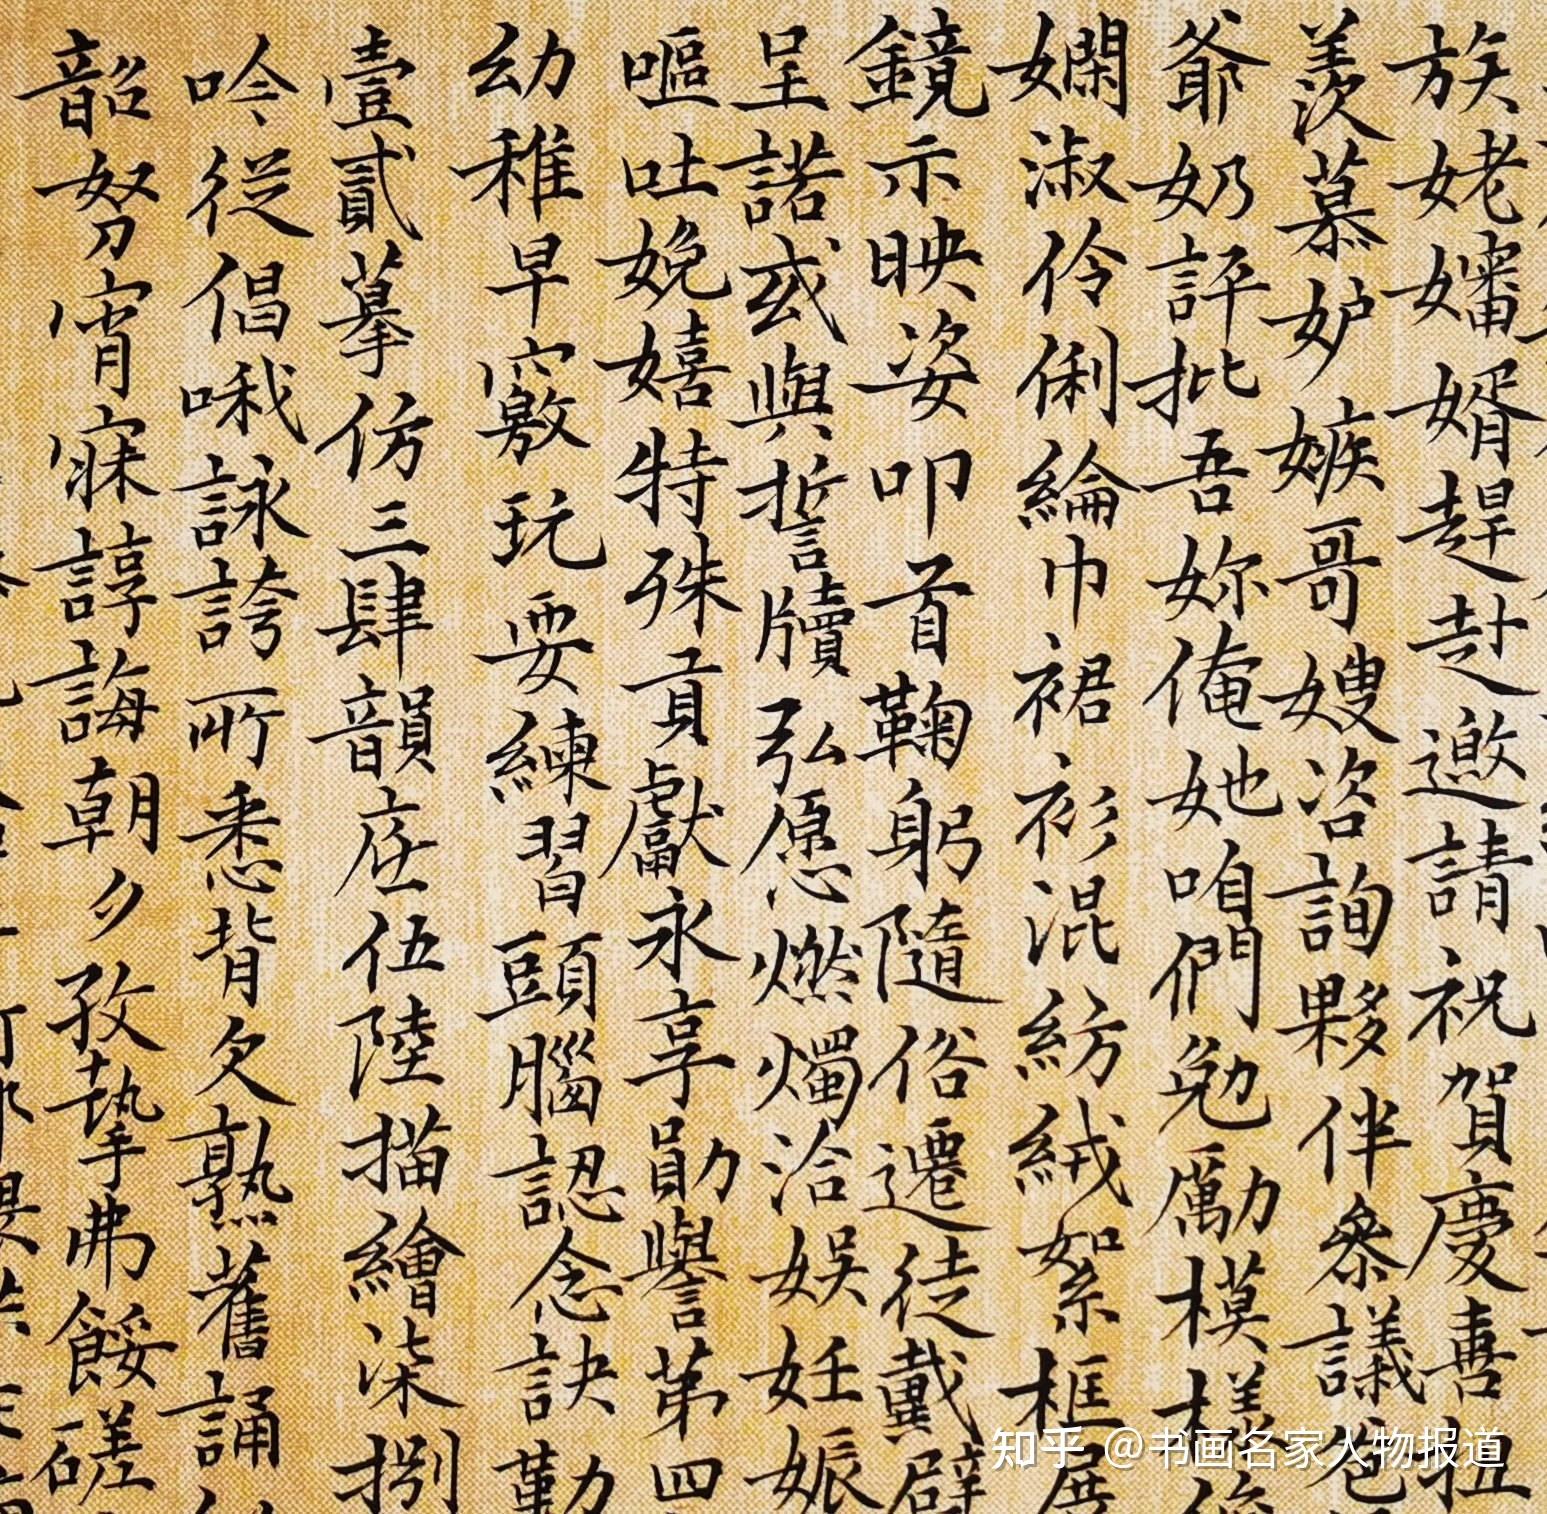 族姥嬸婿趕赴邀請祝賀慶喜扭
羨慕妒嫉哥嫂咨詢夥伴叅議爸
爺奶評批吾妳俺她咱們勉勵模樣
嫻淑伶俐綸巾裙衫混紡絨絮框屐
鏡示映姿叩首鞠躬隨俗遷徒戴
呈諾或與誓牘弘愿燃燭洽娛妊娠
嘔吐娩嬉特殊貢獻永享勛譽第四
幼稚早竅玩耍練習頭腦認念訣勤
壹貳摹仿三肆韻座伍陸描繪柒捌
吟從倡哦詠誇所悉背久熟舊誦
韶努宵寐諄誨朝夕孜摯弗餒磋
知乎 @书画名家人物报道